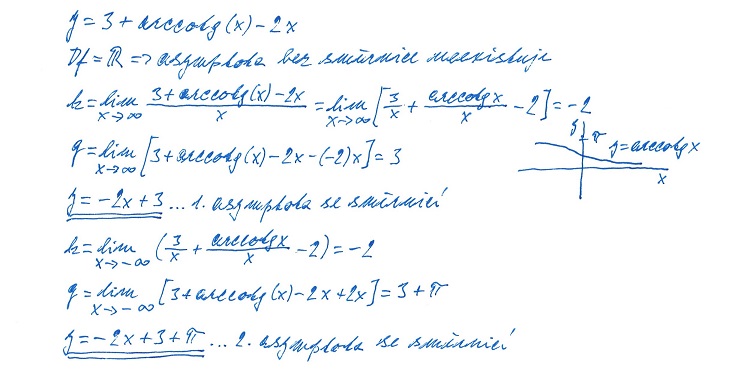 y = 3 + arccotg(x) - 2x
Df = ℝ => asymptota bez směrnice neexistuje
k = lim x→∞ (3 + arccotg(x) - 2x)/x = lim x→∞ [3/x + arccotg x/x - 2] = -2
y π y = arccotg x
x
q = lim x→∞ [3 + arccotg(x) - 2x - (-2)x] = 3
y = -2x + 3 ... 1. asymptota se směrnicí
k = lim x→-∞ (3/x + arccotg x/x - 2) = -2
q = lim x→-∞ [3 + arccotg(x) - 2x + 2x] = 3 + π
y = -2x + 3 + π ... 2. asymptota se směrnicí